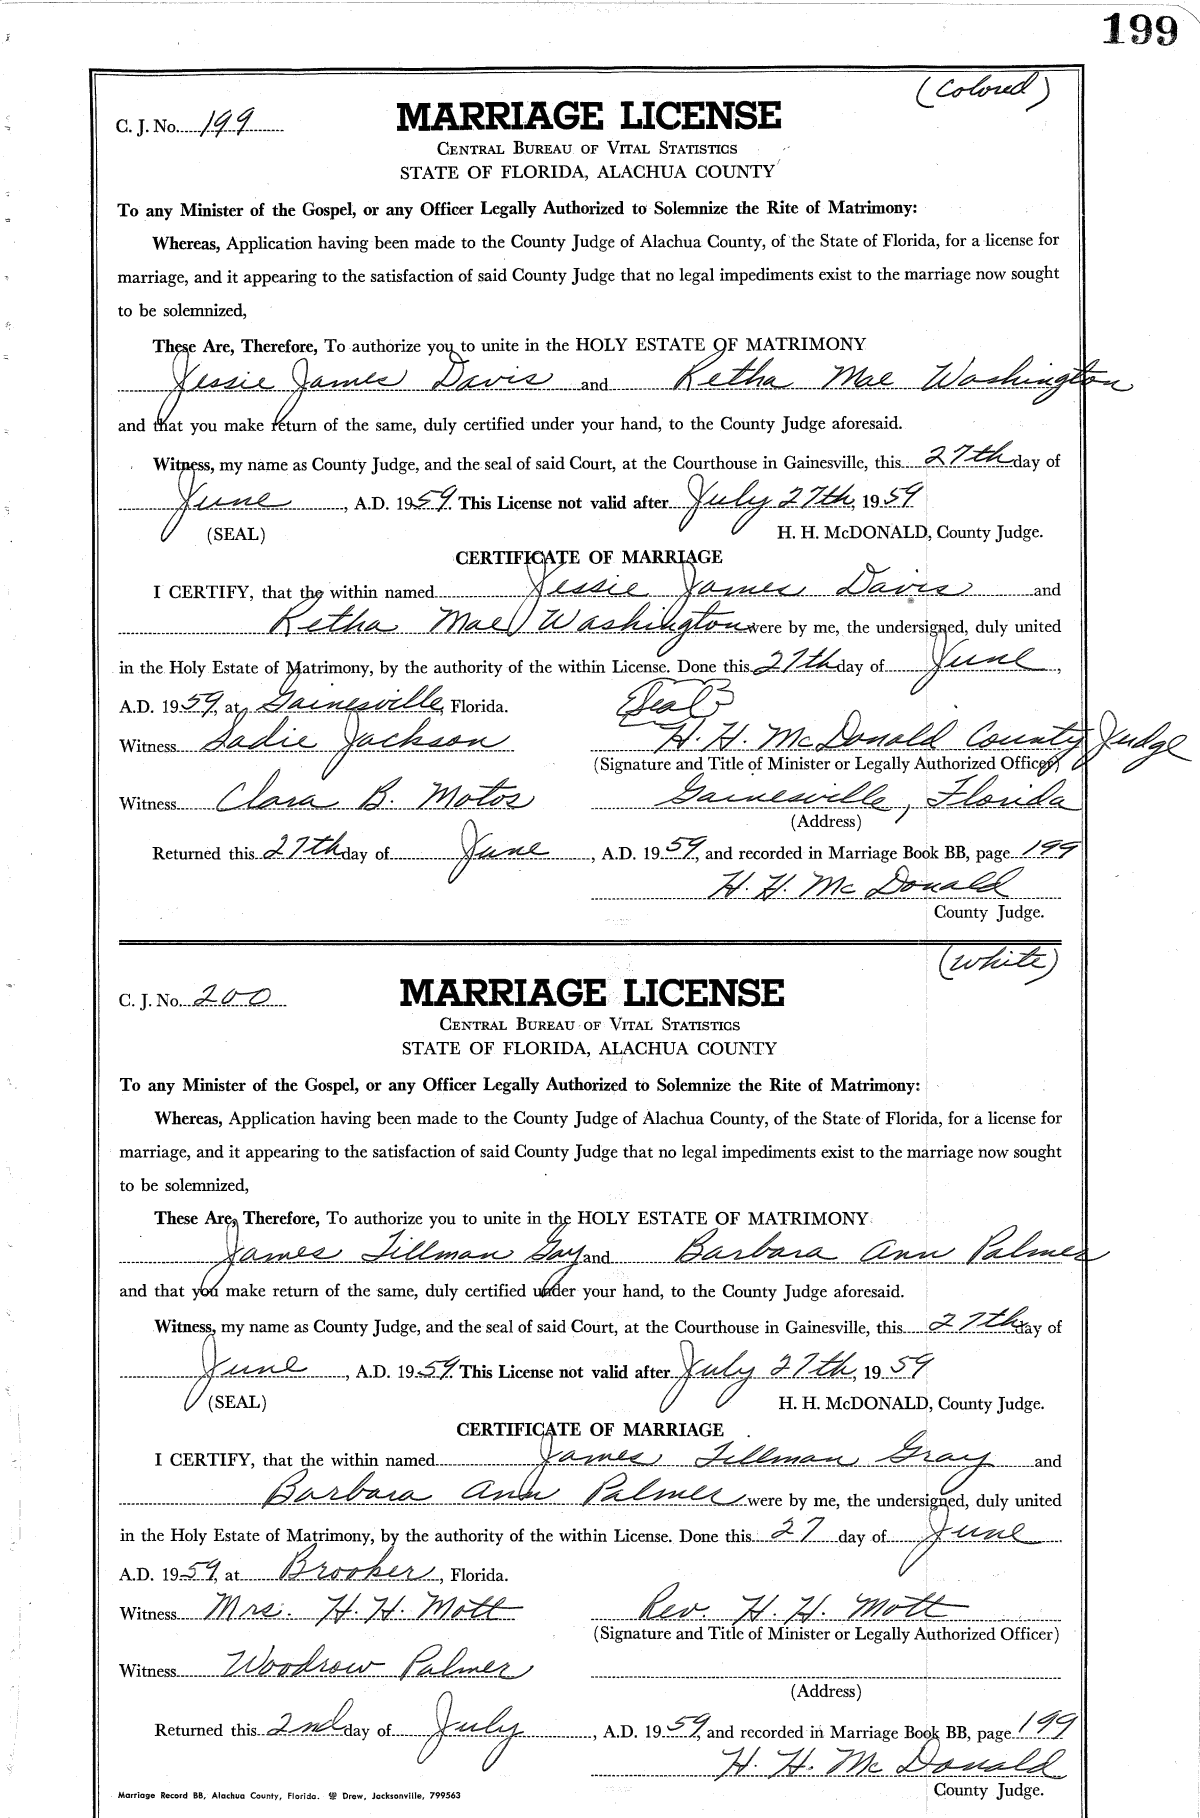 199
(Colored)
C. J. No. 199
MARRIAGE LICENSE
CENTRAL BUREAU OF VITAL STATISTICS
STATE OF FLORIDA, ALACHUA COUNTY
To any Minister of the Gospel, or any Officer Legally Authorized to Solemnize the Rite of Matrimony:
Whereas, Application having been made to the County Judge of Alachua County, of the State of Florida, for a license for
marriage, and it appearing to the satisfaction of said County Judge that no legal impediments exist to the marriage now sought
to be solemnized,
These Are, Therefore, To authorize you to unite in the HOLY ESTATE OF MATRIMONY
Jessie James Davis and Retha Mae Washington
and that you make return of the same, duly certified under your hand, to the County Judge aforesaid.
Witness, my name as County Judge, and the seal of said Court, at the Courthouse in Gainesville, this 27th day of
June, A.D. 1959. This License not valid after July 27th, 1959
(SEAL) H. H. McDONALD, County Judge.
CERTIFICATE OF MARRIAGE
I CERTIFY, that the within named Jessie James Davis and
Retha Mae Washington were by me, the undersigned, duly united
in the Holy Estate of Matrimony, by the authority of the within License. Done this 27th day of June,
A.D. 1959, at Gainesville, Florida. (Seal)
Witness Sadie Jackson H. H. McDonald County Judge
(Signature and Title of Minister or Legally Authorized Officer)
Witness Clara B. Motos Gainesville, Florida
(Address)
Returned this 27th day of June, A.D. 1959, and recorded in Marriage Book BB, page 199
H. H. McDonald
County Judge.
(White)
C. J. No. 200
MARRIAGE LICENSE
CENTRAL BUREAU OF VITAL STATISTICS
STATE OF FLORIDA, ALACHUA COUNTY
To any Minister of the Gospel, or any Officer Legally Authorized to Solemnize the Rite of Matrimony:
Whereas, Application having been made to the County Judge of Alachua County, of the State of Florida, for a license for
marriage, and it appearing to the satisfaction of said County Judge that no legal impediments exist to the marriage now sought
to be solemnized,
These Are, Therefore, To authorize you to unite in the HOLY ESTATE OF MATRIMONY
James Tillman Gay and Barbara Ann Palmer
and that you make return of the same, duly certified under your hand, to the County Judge aforesaid.
Witness, my name as County Judge, and the seal of said Court, at the Courthouse in Gainesville, this 27th day of
June, A.D. 1959. This License not valid after July 27th, 1959
(SEAL) H. H. McDONALD, County Judge.
CERTIFICATE OF MARRIAGE
I CERTIFY, that the within named James Tillman Gray and
Barbara Ann Palmer were by me, the undersigned, duly united
in the Holy Estate of Matrimony, by the authority of the within License. Done this 27 day of June
A.D. 1959, at Brooker, Florida.
Witness Mrs. H. H. Mott Rev. H. H. Mott
(Signature and Title of Minister or Legally Authorized Officer)
Witness Woodrow Palmer
(Address)
Returned this 2nd day of July, A.D. 1959, and recorded in Marriage Book BB, page 199
H. H. McDonald
County Judge.
Marriage Record BB, Alachua County, Florida. Drew, Jacksonville, 799563